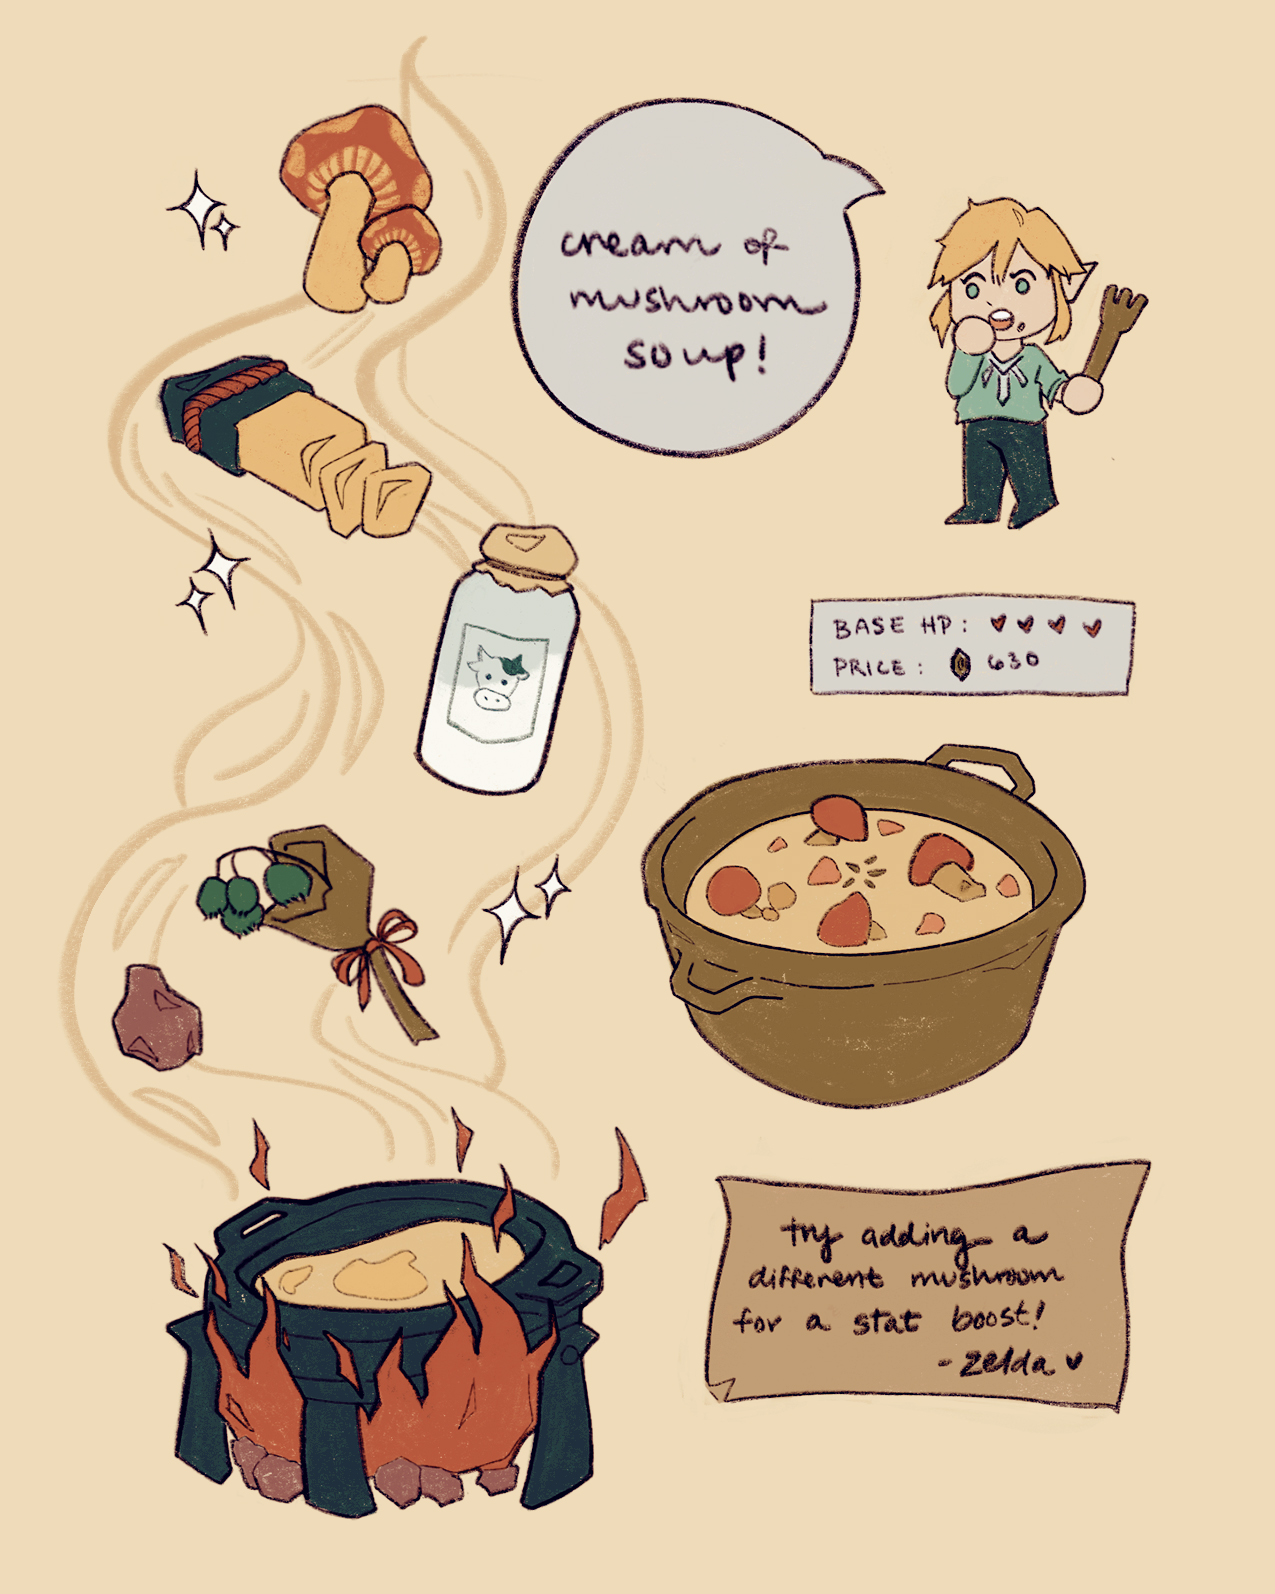 cream of
mushroom
soup!
BASE HP:
PRICE: 630
try adding a
different mushroom
for a stat boost!
- Zelda ♥